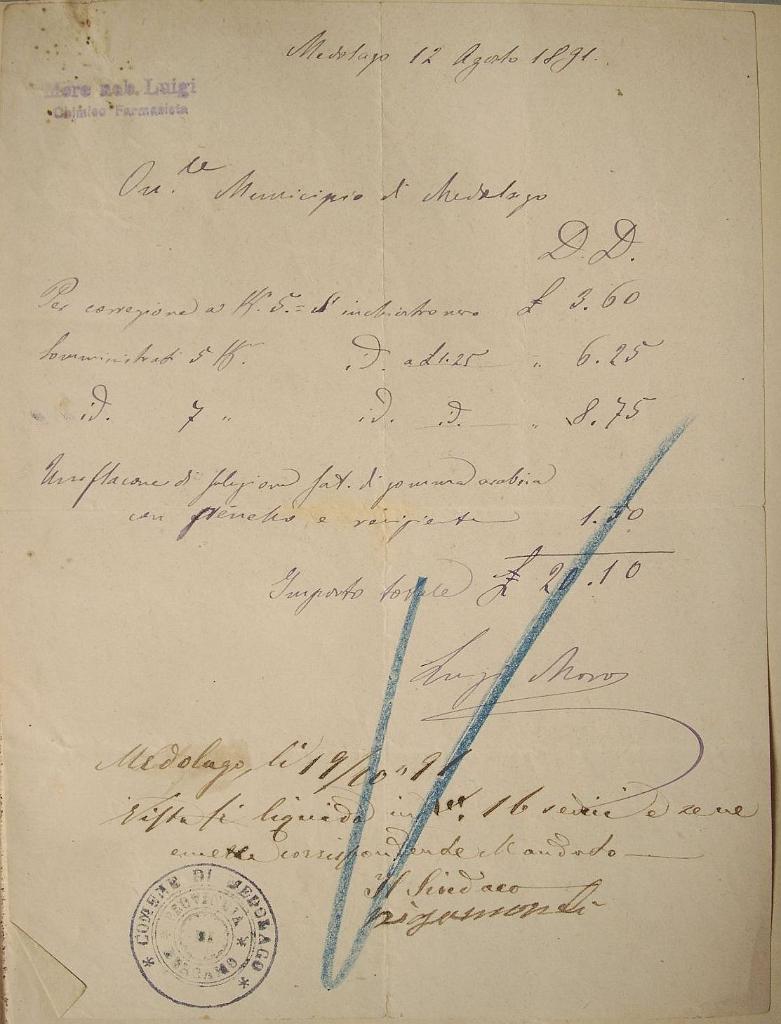 Medolago 12 Agosto 1891.
Moro nob. Luigi
Chimico Farmasista
On.le Municipio di Medolago
D. D.
Per correzione a K. 5 = d'inchiostro nero £ 3.60
Somministrati 5 K. id. a £ 1.25 " 6.25
id. 7 " id. id. " 8.75
Un flacone di soluzione sat. di gomma arabica
con penello e recipiente 1.50
Importo totale £ 20.10
Luigi Moro
Medolago, li 19/10 " 91
Vista si liquida in 16 sedici e se ne
emette corrispondente Mandato
Il Sindaco
* COMUNE DI MEDOLAGO *
PROVINCIA DI BERGAMO